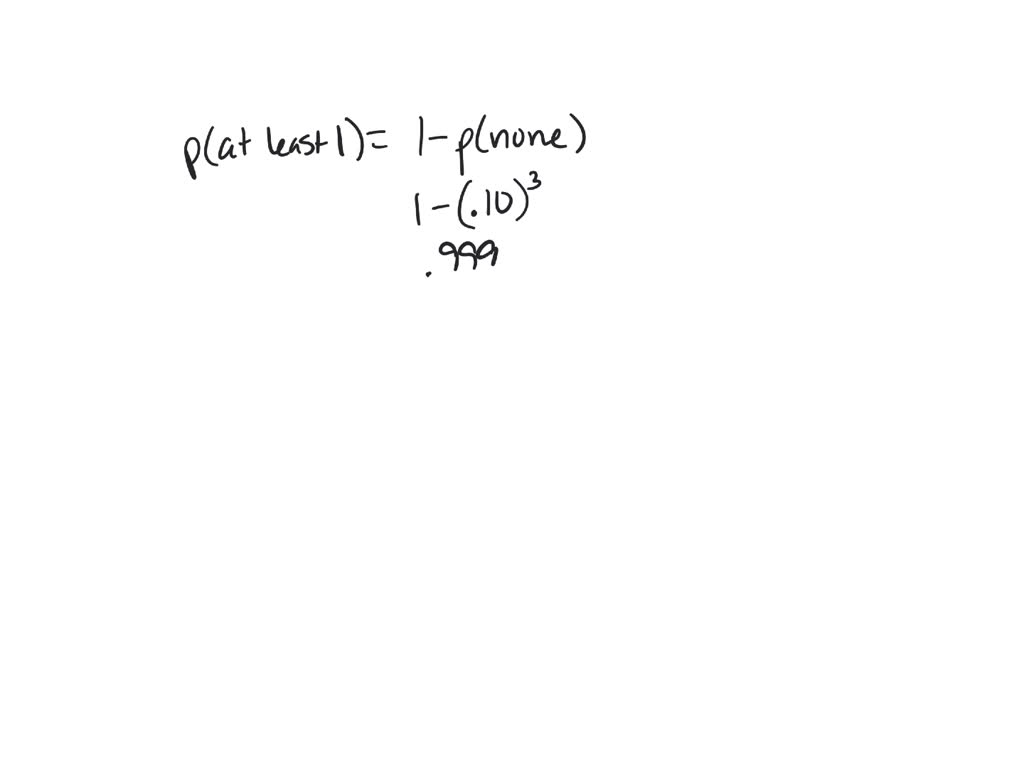 p(at least 1) = 1 - p(none)
1 - (.10)³
.999